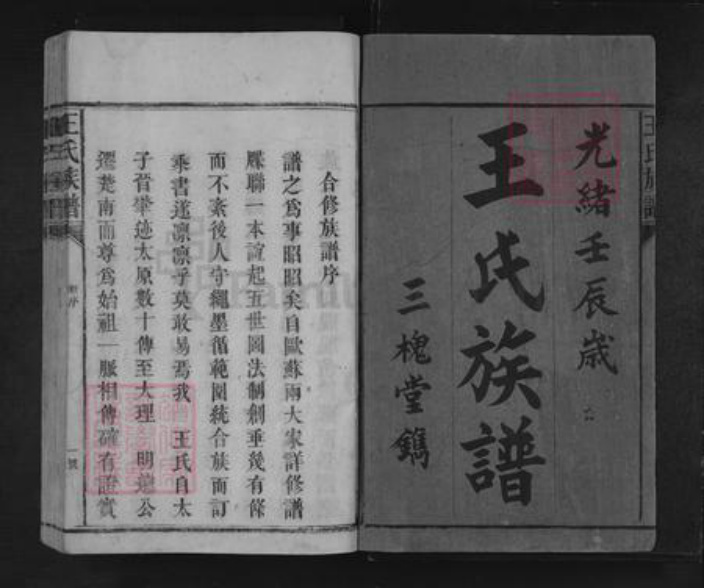 光緒壬辰歲
王氏族譜
三槐堂鐫
合修族譜序
譜之爲事昭昭矣自歐蘇兩大家詳修譜
牒聯一本誼起五世圖法制創垂幾有條
而不紊後人守繩墨循範圍統合族而訂
乘書遂凜凜乎莫敢易焉我 王氏自太
子晉肇迹太原數十傳至大理 明遠公
遷楚南而尊爲始祖一脈相傳確有證實
王氏族譜
一號